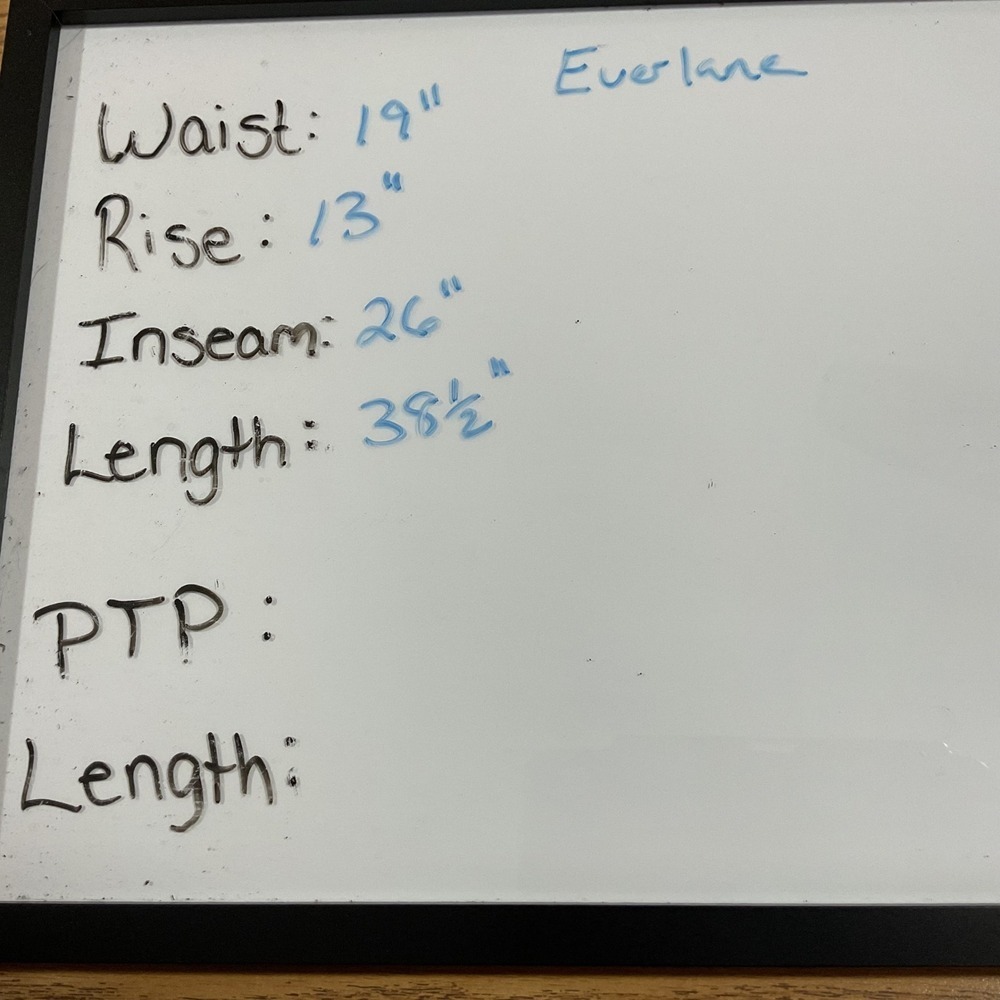 Everlane
Waist: 19"
Rise: 13"
Inseam: 26"
Length: 38½"
PTP:
Length: